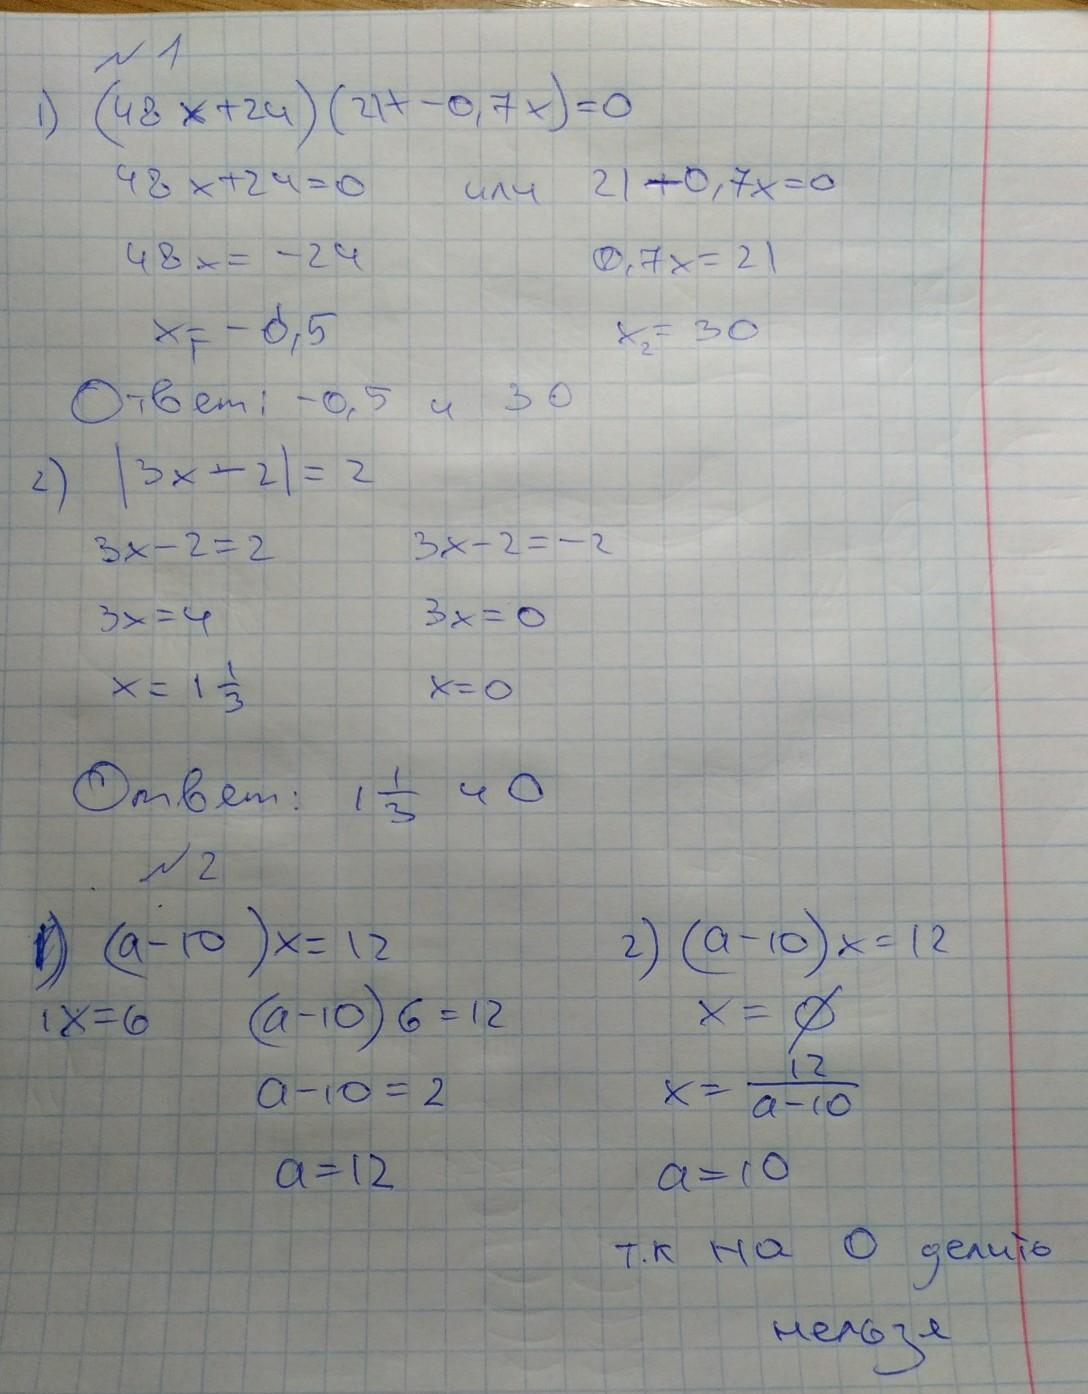 №1
1) (48x+24)(21-0,7x)=0
48x+24=0 или 21-0,7x=0
48x=-24 0,7x=21
x₁=-0,5 x₂=30
Ответ: -0,5 и 30
2) |3x-2|=2
3x-2=2 3x-2=-2
3x=4 3x=0
x=1 1/3 x=0
Ответ: 1 1/3 и 0
№2
1) (a-10)x=12 2) (a-10)x=12
1x=6 (a-10)6=12 x=∅
a-10=2 x=12/(a-10)
a=12 a=10
т.к на 0 делить
нельзя